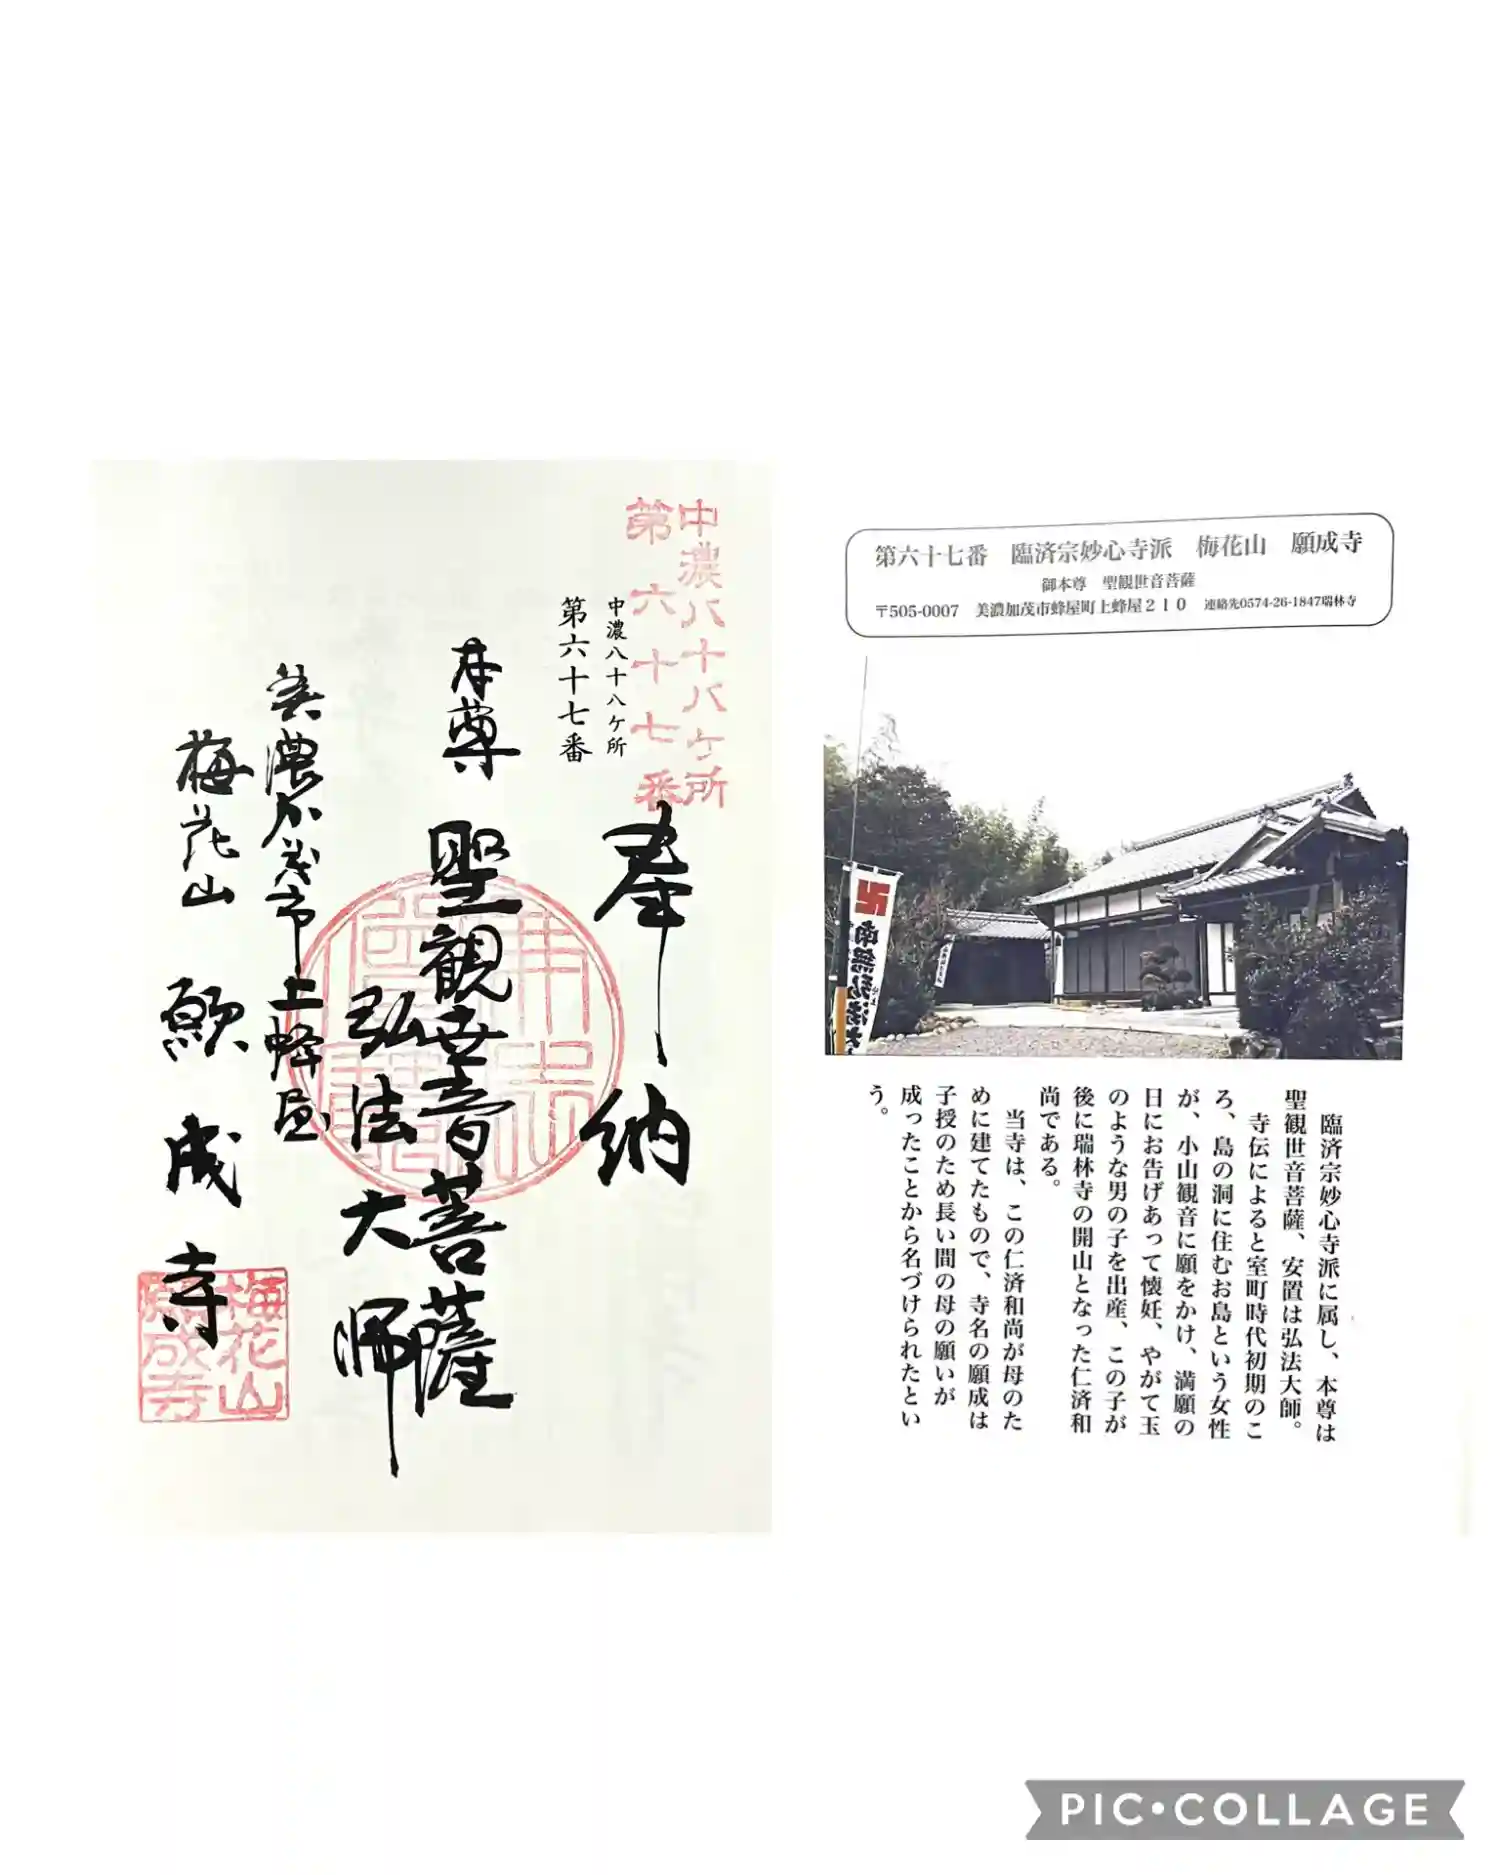 中濃八十八ヶ所
第六十七番
中濃八十八ヶ所
第六十七番
奉納
本尊 聖観世音菩薩
弘法大師
美濃加茂市上蜂屋
梅花山 願成寺
梅花山
願成寺
第六十七番 臨済宗妙心寺派 梅花山 願成寺
御本尊 聖観世音菩薩
〒505-0007 美濃加茂市蜂屋町上蜂屋２１０ 連絡先0574-26-1847瑞林寺
卍
南無弘法大
臨済宗妙心寺派に属し、本尊は
聖観世音菩薩、安置は弘法大師。
寺伝によると室町時代初期のこ
ろ、島の洞に住むお島という女性
が、小山観音に願をかけ、満願の
日にお告げあって懐妊、やがて玉
のような男の子を出産、この子が
後に瑞林寺の開山となった仁済和
尚である。
当寺は、この仁済和尚が母のた
めに建てたもので、寺名の願成は
子授のため長い間の母の願いが
成ったことから名づけられたとい
う。
PIC•COLLAGE